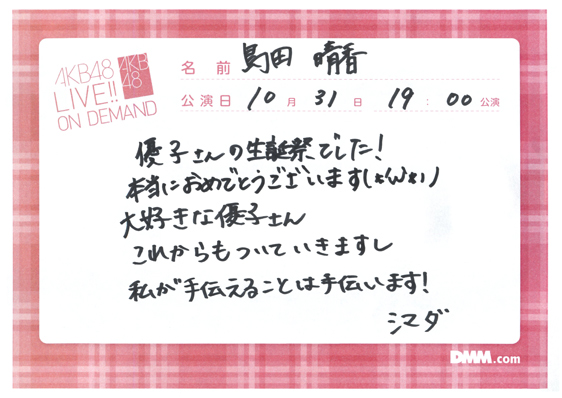 AKB48
LIVE!!
ON DEMAND
AKB
48
名前 島田 晴香
公演日 10月 31日 19:00公演
優子さんの生誕祭でした!
本当におめでとうございます(*´ω`*)ノ
大好きな優子さん
これからもついていきますし
私が手伝えることは手伝います!
シマダ
DMM.com